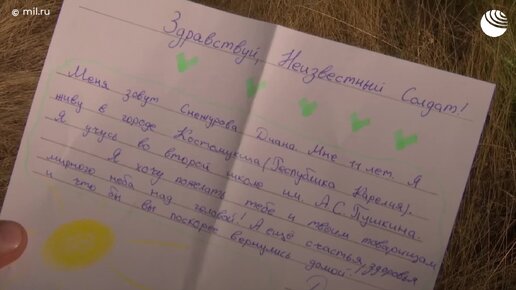 © mil.ru
Здравствуй, Неизвестный Солдат!
Меня зовут Снежурова Диана. Мне 11 лет. Я
живу в городе Костомукша (Республика Карелия).
Я учусь во второй школе им. А.С. Пушкина.
Я хочу пожелать тебе и твоим товарищам
мирного неба над головой! А ещё счастья, здоровья
и что бы вы поскорее вернулись домой.